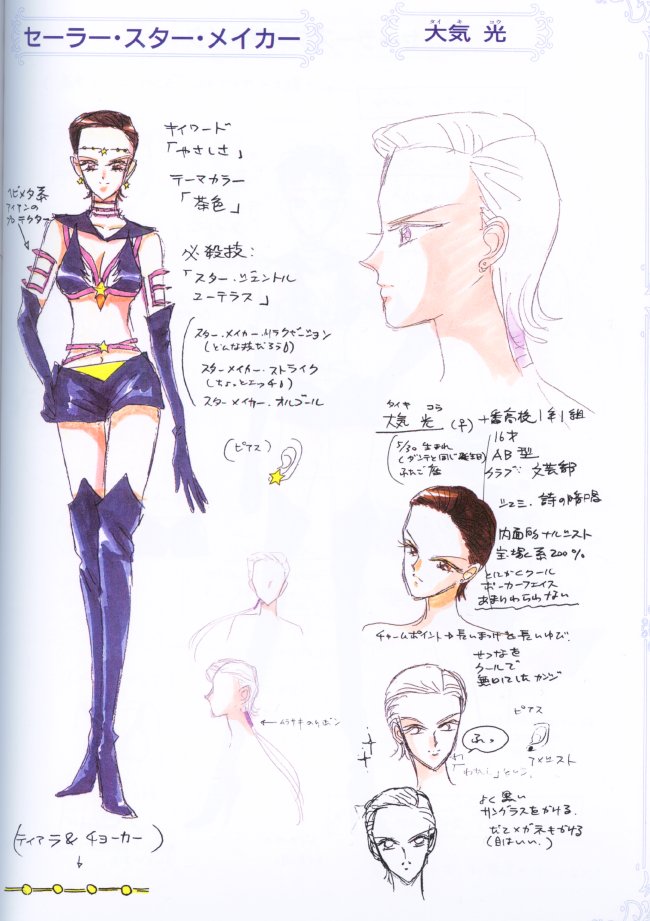 セーラー・スター・メイカー
タイキ コウ
大気 光
キイワード
「やさしさ」
テーマカラー
「茶色」
ヘビメタ系
アイアンの
プロテクター
必殺技:
「スター・ジェントル
ユーテラス」
スター・メイカー・リラクゼーション
(どんな技だろう)
スターメイカー・ストライク
(ちょっとエッチ)
スターメイカー・オルゴール
(ピアス)
タイキ コウ
大気 光 (♀) 十番高校1年1組
5/30 生まれ
(ダンテと同じ誕生日)
ふたご座
16才
AB型
クラブ: 文芸部
シュミ・詩の暗唱
内面的ナルシスト
宝塚系200%
とにかくクール
ポーカーフェイス
あまりわらわない
チャームポイント→長いまつげと長いゆび.
せつなを
クールで
無口にしたカンジ
ピアス
ふっ
アメジスト
←ムラサキのリボン
よく黒い
サングラスをかける.
だてメガネもかける
(目はいい.)
(ティアラ& チョーカー)